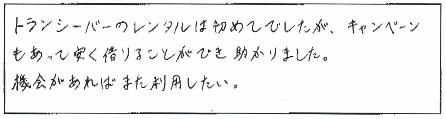 トランシーバーのレンタルは初めてでしたが、キャンペーン
もあって安く借りることができ助かりました。
機会があればまた利用したい。